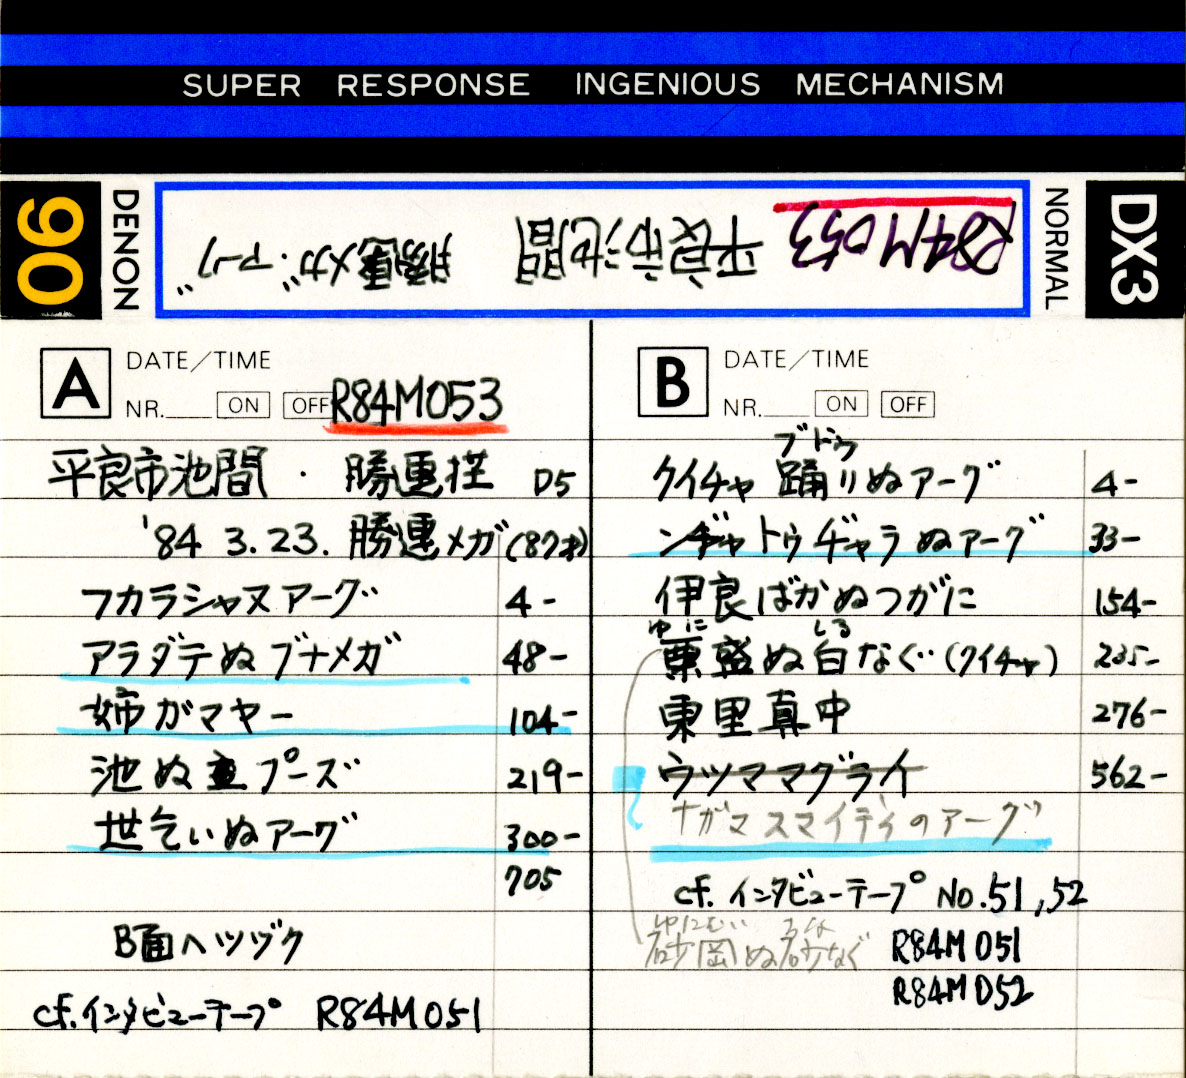 SUPER RESPONSE INGENIOUS MECHANISM
90
DENON
R84M053 平良市池間 勝連メガ "アーグ"
NORMAL
DX3
A
DATE/TIME
NR. ON OFF R84M053
平良市池間・勝連 D5
'84 3.23. 勝連メガ(87才)
フカラシャヌアーグ 4-
アラダテぬブナメガ 48-
姉がマヤー 104-
池ぬ主プーズ 219-
世乞いぬアーグ 300-
705
B面へツヅク
cf.インタビューテープ R84M051
B
DATE/TIME
NR. ON OFF
ブドゥ
クイチャ踊りぬアーグ 4-
ンギャトゥギャラぬアーグ 33-
伊良ばかぬつがに 154-
ゆに しる
粟盛ぬ白なぐ(クイチャ) 235-
東里真中 276-
ウツママグライ 562-
ナガマスマイディのアーグ
cf.インタビューテープ No.51,52
ゆにむい るな
砂岡ぬ砂なぐ R84M051
R84M052